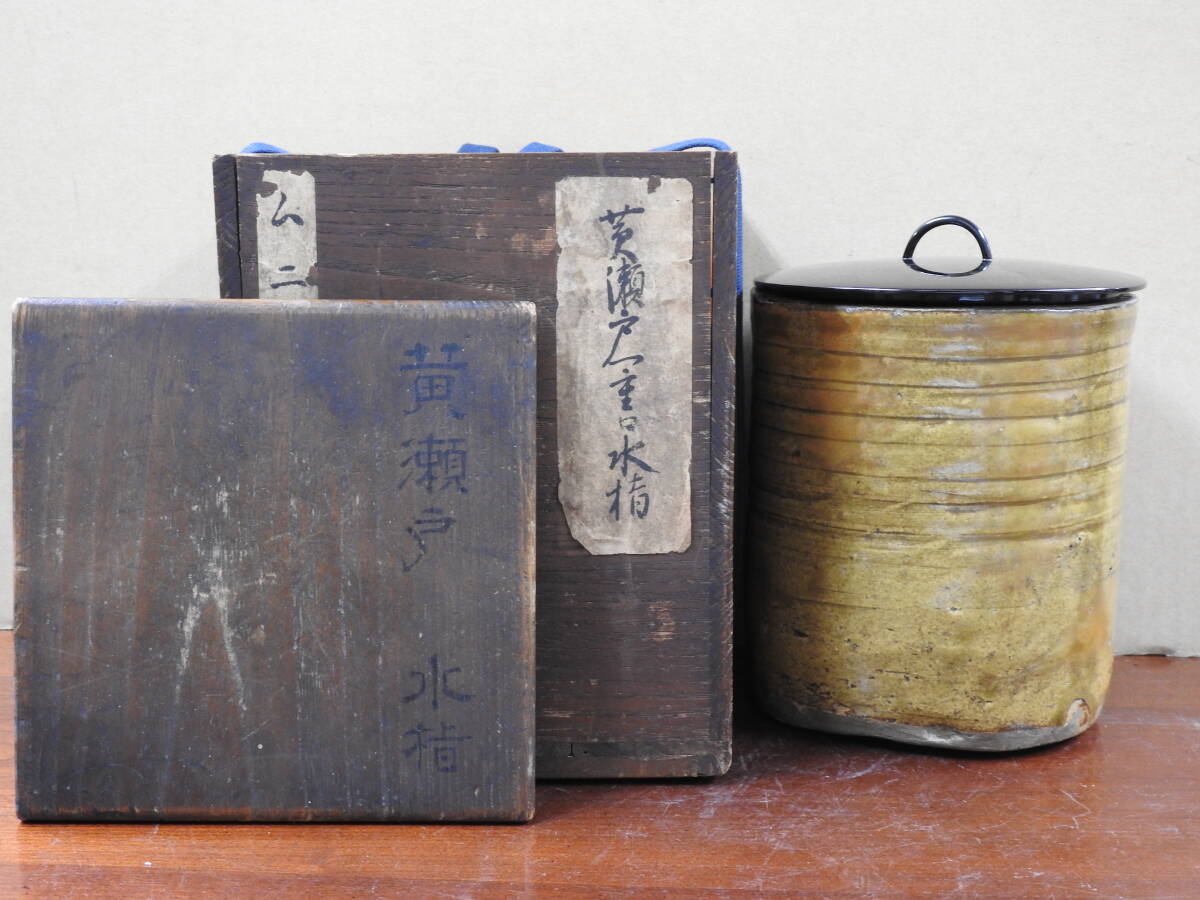 黄瀬戸一重口水指
ム二
黄瀬戸 水指